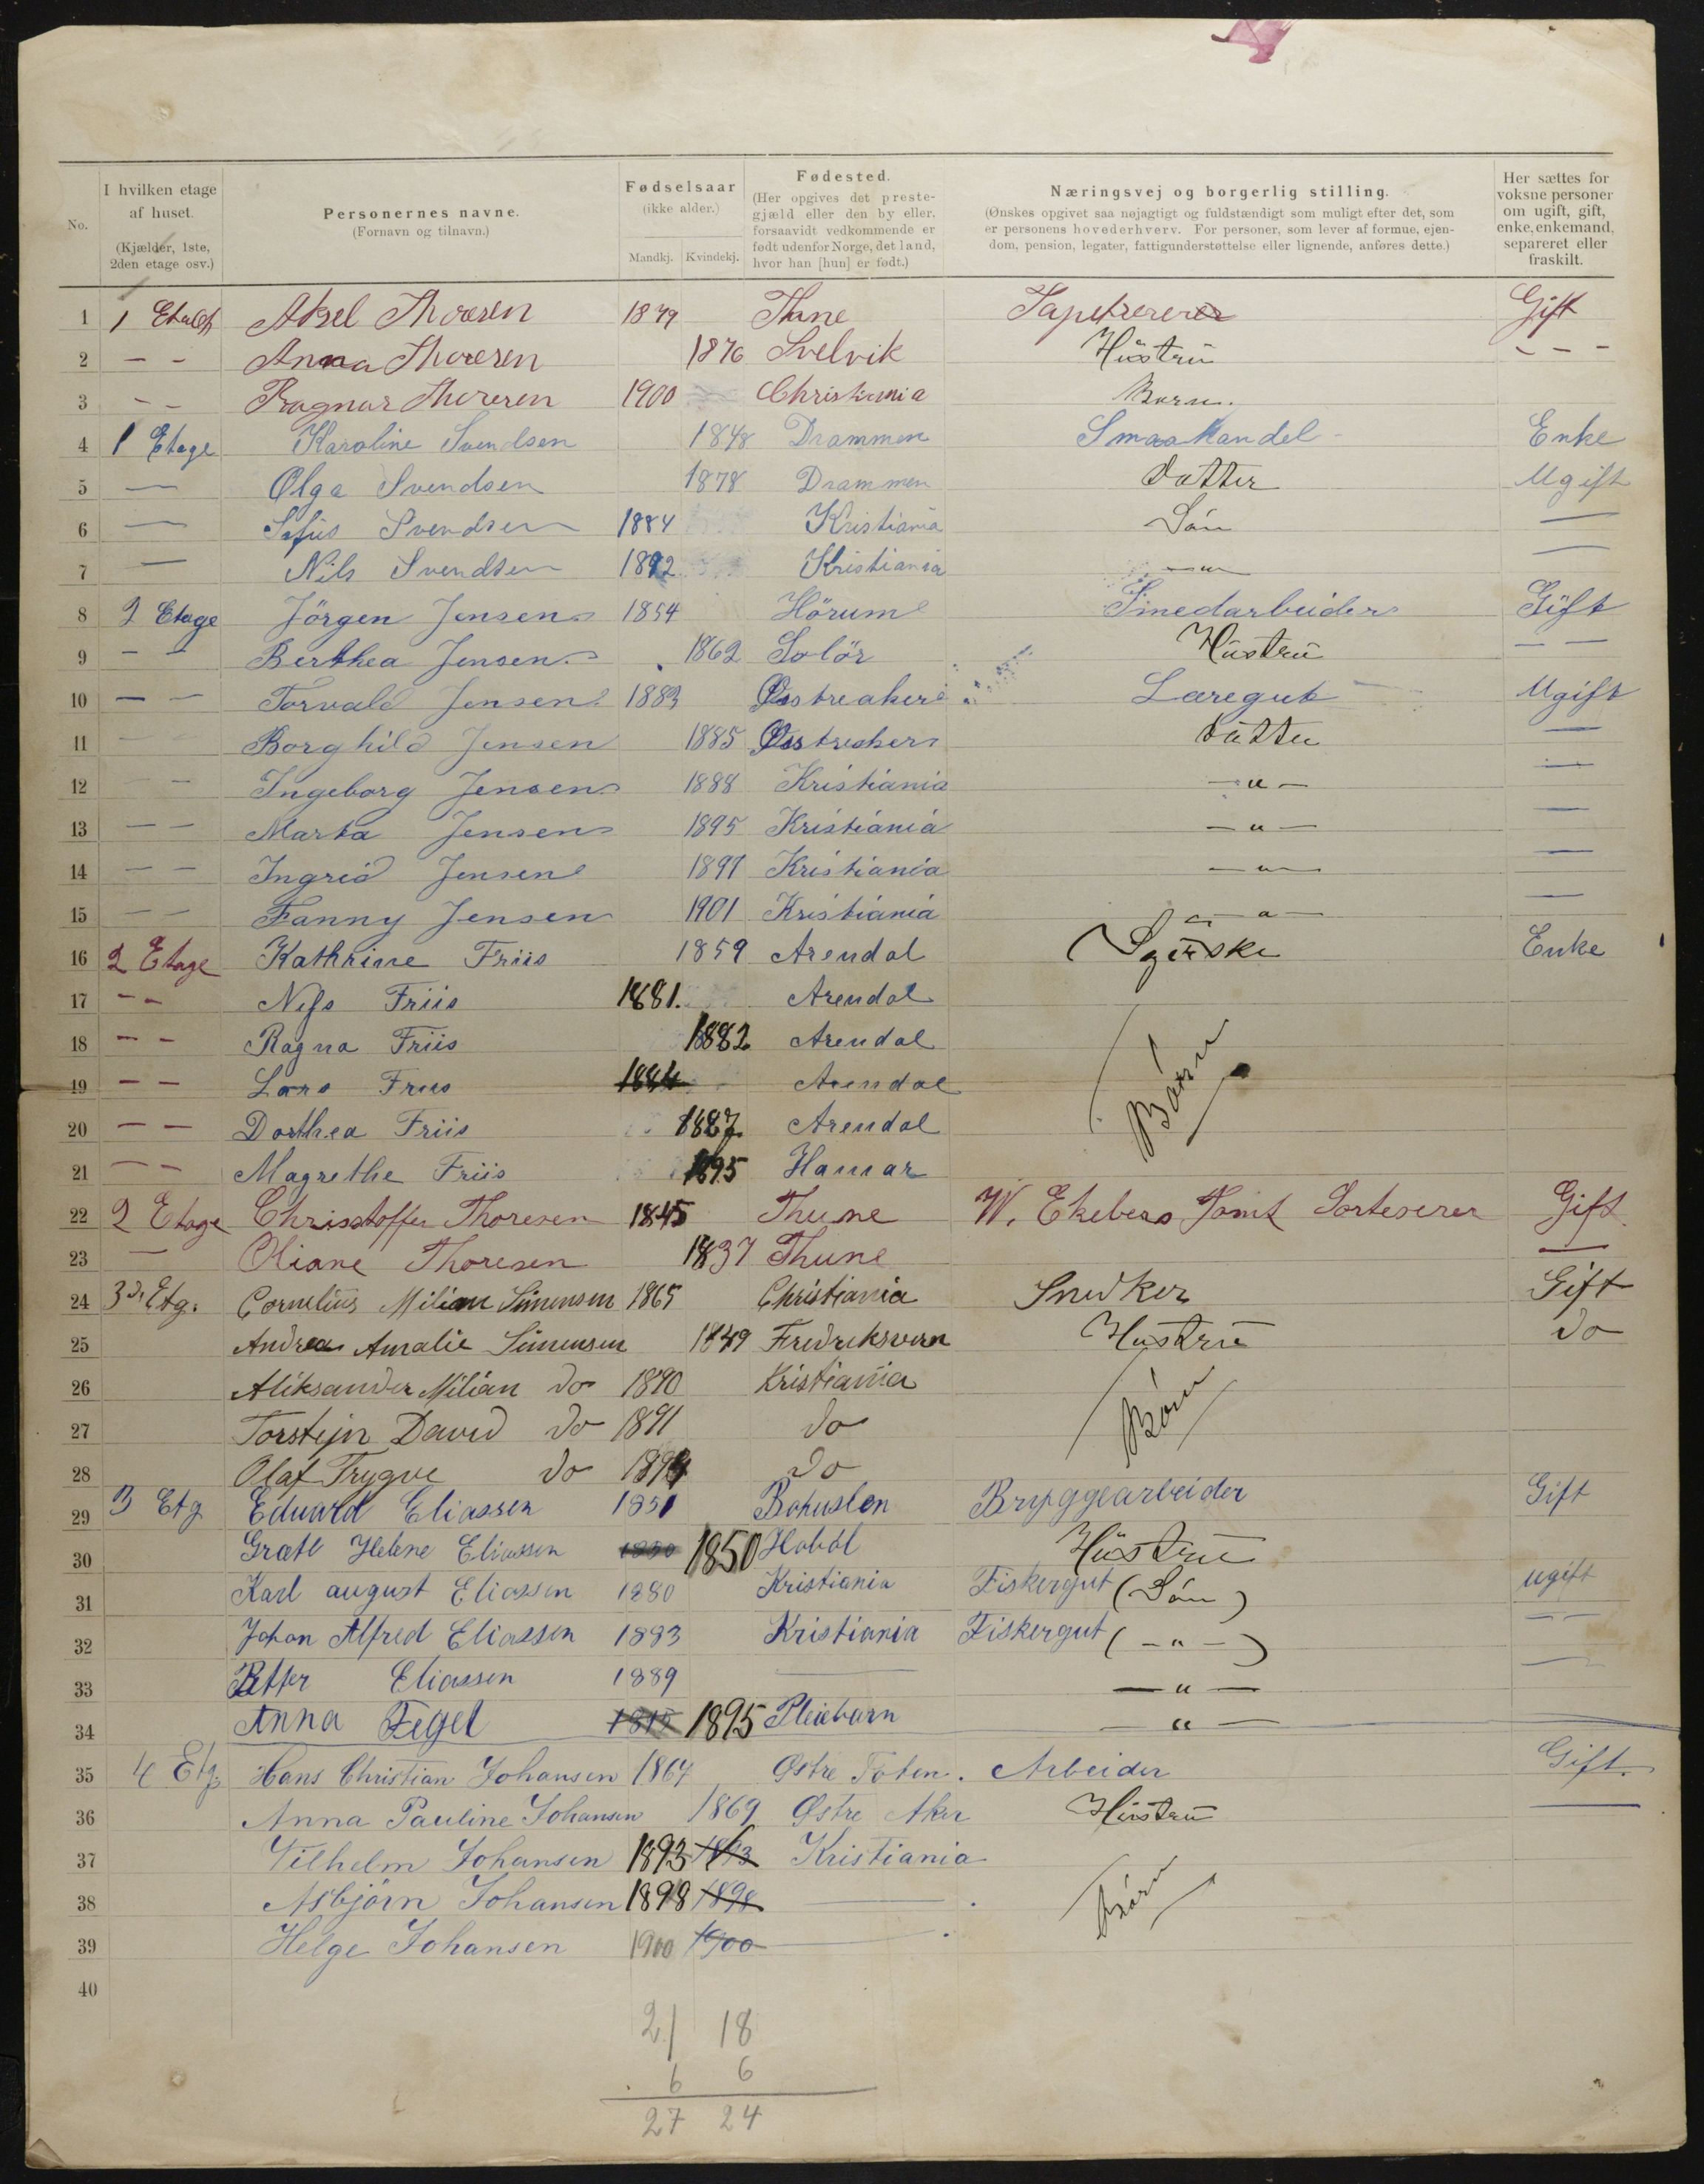 No. I hvilken etage af huset. (Kjælder, 1ste, 2den etage osv.) Personernes navne. (Fornavn og tilnavn.) Fødselsaar (ikke alder.) Mandkj. Kvindekj. Fødested. (Her opgives det prestegjæld eller den by eller, forsaavidt vedkommende er født udenfor Norge, det land, hvor han [hun] er født.) Næringsvej og borgerlig stilling. (Ønskes opgivet saa nøjagtigt og fuldstændigt som muligt efter det, som er personens hovederhverv. For personer, som lever af formue, ejendom, pension, legater, fattigunderstøttelse eller lignende, anføres dette.) Her sættes for voksne personer om ugift, gift, enke, enkemand, separeret eller fraskilt.
1 1 Aksel Thoresen 1879 Tapetserer Gift
2 - - Anna Thoresen 1876 Svelvik Hustru - - -
3 - - Ragnar Thoresen 1900 Christiania Barn.
4 1 Etage Karoline Svendsen 1848 Drammen Smaahandel Enke
5 — Olga Svendsen 1878 Drammen Datter Ugift
6 — Sofus Svendsen 1884 Kristiania Sön —
7 — Nils Svendsen 1892 Kristiania —"— —
8 2 Etage Jörgen Jensen 1854 Smedarbeider Gift
9 - - Berthea Jensen 1862 Solör Hustru — —
10 — — Torvald Jensen 1883 Læregut Ugift
11 — Borghild Jensen 1885 Datter —
12 — — Ingeborg Jensen 1888 Kristiania —"— —
13 — — Marta Jensen 1895 Kristiania —"— —
14 — — Ingrid Jensen Kristiania —"— —
15 — — Fanny Jensen 1901 Kristiania —"— —
16 2 Etage Kathrine Friis 1859 Arendal Syerske Enke
17 - - Nils Friis 1881. Arendal
18 - - Ragna Friis 1882 Arendal Börn
19 - - Lars Friis 1884 Arendal
20 — — Dorthea Friis 1887 Arendal
21 — — Magrethe Friis 1895 Hamar
22 2 Etage Christoffer Thoresen 1845 Thune W. Ekebers Tomt Sorteserer Gift
23 — Oliane Thoresen 1837 Thune —
24 3die Etg. Cornelius Milian Simensen 1865 Christiania Snedker Gift
25 Andrea Amalie Simensen Fredriksvern Hustru do
26 Aleksander Milian do 1890 Kristiania Börn
27 Torstejn David do 1891 do
28 Olaf Trygve do 1894 do
29 3 Etg Edward Eliassen 1851 Bohuslen Bryggearbeider Gift
30 Grete Helene Eliassen 1850 1850 Hobøl Hustru
31 Karl august Eliassen 1880 Kristiania Fiskergut (Sön) ugift
32 Johan Alfred Eliassen 1883 Kristiania Fiskergut (—"—) — —
33 Petter Eliassen 1889 — —"— —
34 Anna 1895 1895 Pleiebarn —"—
35 4 Etg. Hans Christian Johansen 1864 Østre Toten. Arbeider Gift.
36 Anna Pauline Johansen 1869 Østre Aker Hustru —
37 Vilhelm Johansen 1893 1893 Kristiania
38 Asbjörn Johansen 1898 1898 — Börn
39 Helge Johansen 1900 1900 —
40
21 18
6 6
27 24